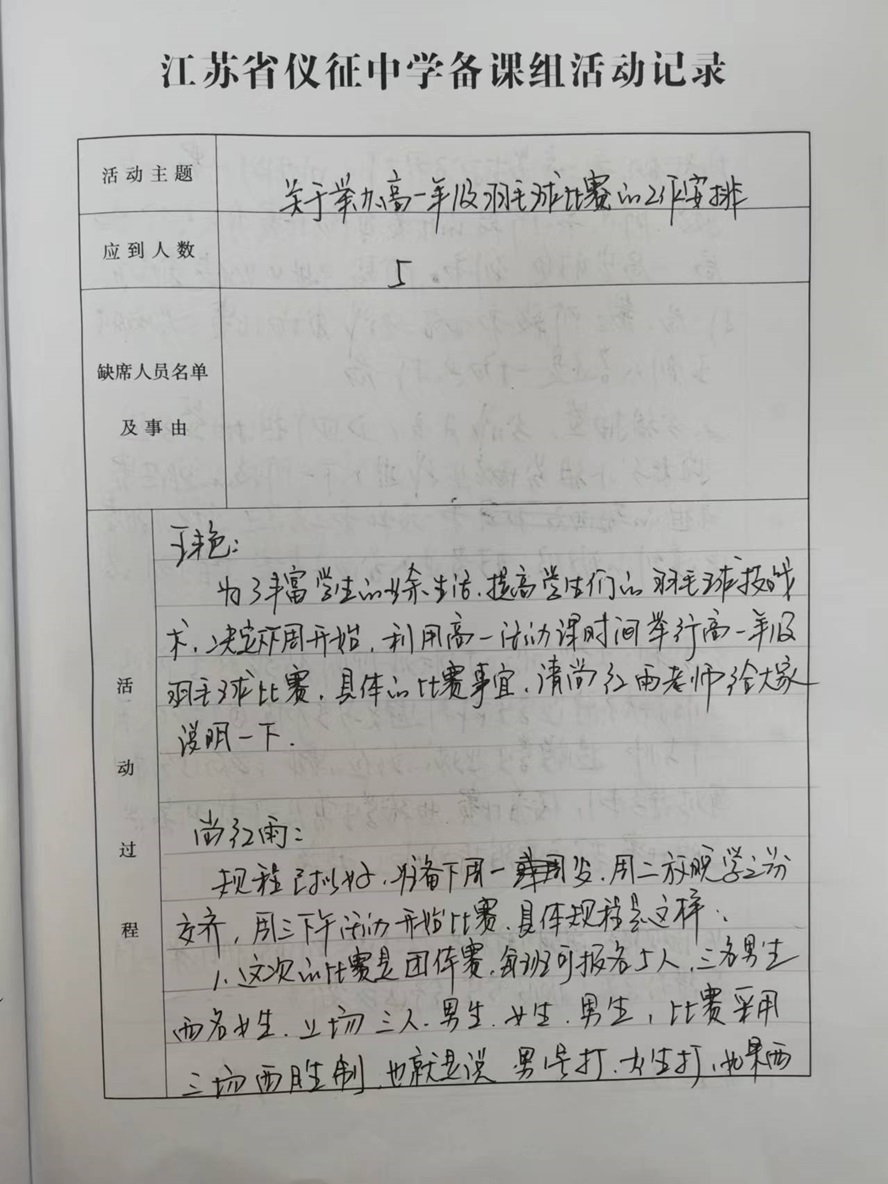 江苏省仪征中学备课组活动记录
活动主题
关于举办高一年级羽毛球比赛的工作安排
应到人数
5
缺席人员名单
及事由
活动过程
王艳：
为了丰富学生的业余生活，提高学生们的羽毛球技战
术，决定下周开始，利用高一活动课时间举行高一年级
羽毛球比赛，具体的比赛事宜，请尚红雨老师给大家
说明一下．
尚红雨：
规程已拟好，准备下周一发，周二放晚学之前
交齐，周三下午活动开始比赛，具体规程是这样：
1．这次的比赛是团体赛，每班可报名5人，三名男生
两名女生．上场三人．男生．女生．男生，比赛采用
三场两胜制，也就是说 男1号打．女生打，如果两